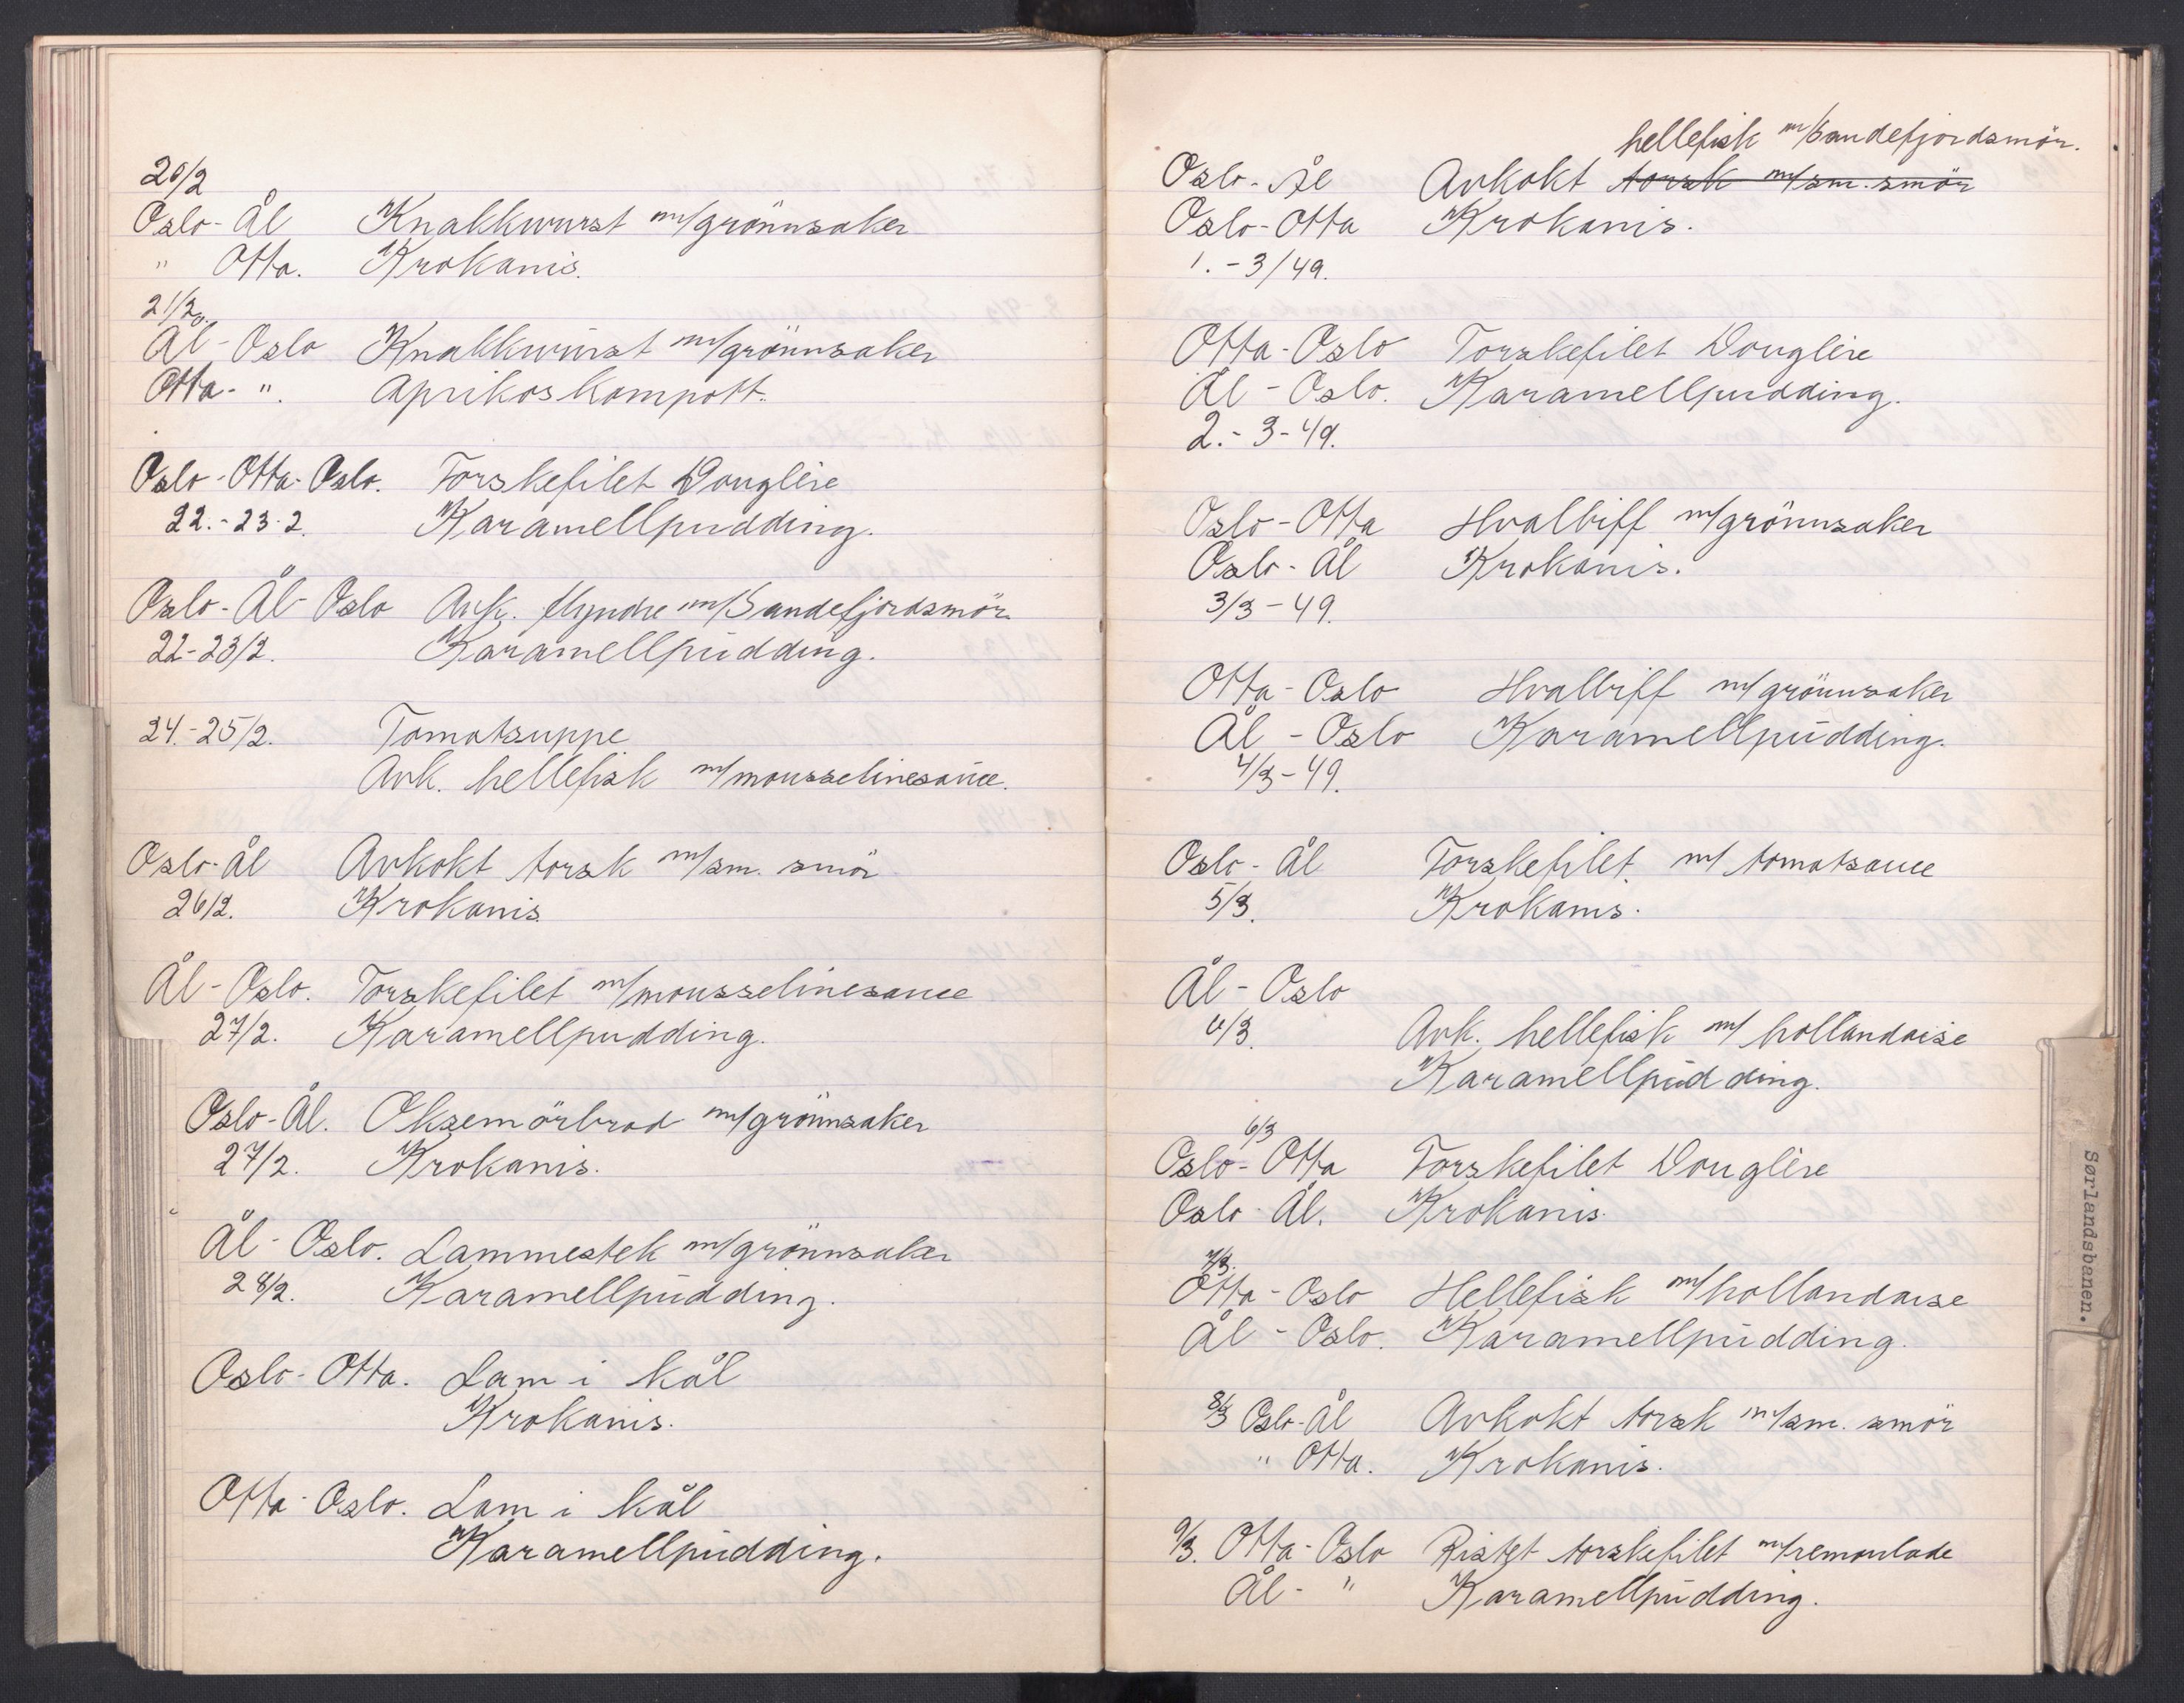 20/2
Oslo-Ål Knakkwurst m/grönnsaker
" Otta. Krokanis.
21/2
Ål-Oslo Knakkwurst m/grönnsaker
Otta-". Aprikoskompott.
Oslo-Otta-Oslo. Torskefilet Douglère
22.-23-2. Karamellpudding.
Oslo-Ål-Oslo Avk. flyndre m/Sandefjordsmör
22-23/2. Karamellpudding.
24.-25/2. Tomatsuppe
Avk. hellefisk m/mousselinesauce.
Oslo-Ål Avkokt torsk m/sm. smör
26/2. Krokanis
Ål-Oslo. Torskefilet m/mousselinesauce
27/2. Karamellpudding.
Oslo-Ål. Oksemörbrad m/grönnsaker
27/2. Krokanis.
Ål-Oslo. Lammestek m/grönnsaker
28/2. Karamellpudding.
Oslo-Otta. Lam i kål
Krokanis.
Otta-Oslo. Lam i kål
Karamellpudding.
hellefisk m/Sandefjordsmör.
Oslo-Ål Avkokt torsk m/sm. smör
Oslo-Otta Krokanis.
1.-3/49.
Otta-Oslo Torskefilet Douglère
Ål-Oslo. Karamellpudding.
2.-3-49.
Oslo-Otta Hvalbiff m/grönnsaker
Oslo-Ål Krokanis.
3/3-49.
Otta-Oslo Hvalbiff m/grönnsaker
Ål-Oslo Karamellpudding.
4/3-49.
Oslo-Ål Torskefilet m/tomatsauce
5/3. Krokanis.
Ål-Oslo
6/3. Avk. hellefisk m/hollandaise
Karamellpudding.
6/3
Oslo-Otta Torskefilet Douglère
Oslo-Ål. Krokanis.
7/3.
Otta-Oslo Hellefisk m/hollandaise
Ål-Oslo. Karamellpudding.
8/3 Oslo-Ål Avkokt torsk m/sm. smör
" Otta. Krokanis.
9/3. Otta-Oslo Ristet torskefilet m/remoulade
Ål-" Karamellpudding.
Sørlandsbanen.